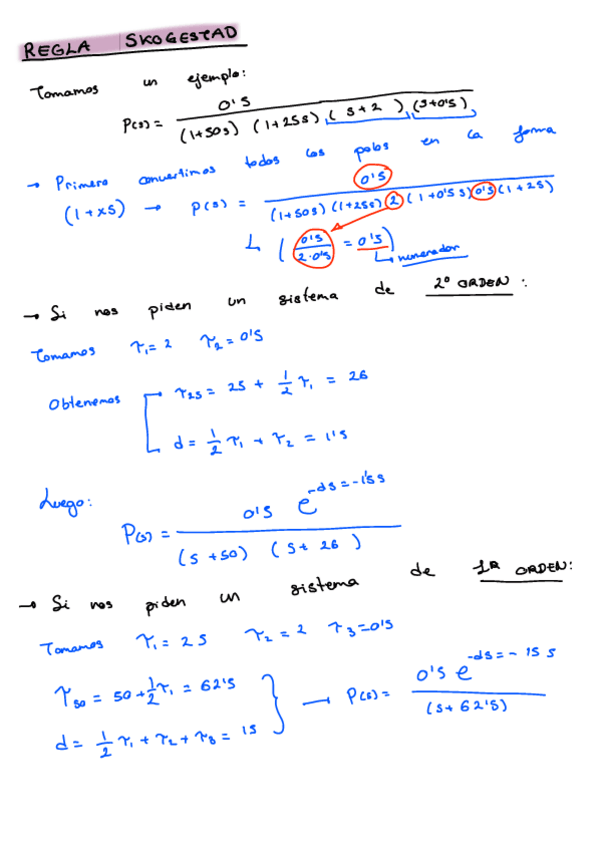 REGLA SKOGESTAD
Tomamos un ejemplo:
P(s) = 0'5 / (1+50s) (1+25s) (s+2) (s+0'5)
→ Primero convertimos todos los polos en la forma
(1+xs) → P(s) = 0'5 / (1+50s) (1+25s) 2 (1+0'5s) 0'5 (1+2s)
↳ (0'5 / 2·0'5 = 0'5)
↳ numerador
→ Si nos piden un sistema de 2º ORDEN:
Tomamos τ₁ = 2 τ₂ = 0'5
Obtenemos
τ₂₅ = 25 + 1/2 τ₁ = 26
d = 1/2 τ₁ + τ₂ = 1'5
Luego:
P(s) = 0'5 e^(-ds = -1'5s) / (s+50) (s+26)
→ Si nos piden un sistema de 1R ORDEN:
Tomamos τ₁ = 25 τ₂ = 2 τ₃ = 0'5
τ₅₀ = 50 + 1/2 τ₁ = 62'5
d = 1/2 τ₁ + τ₂ + τ₃ = 15
→ P(s) = 0'5 e^(-ds = -15s) / (s+62'5)